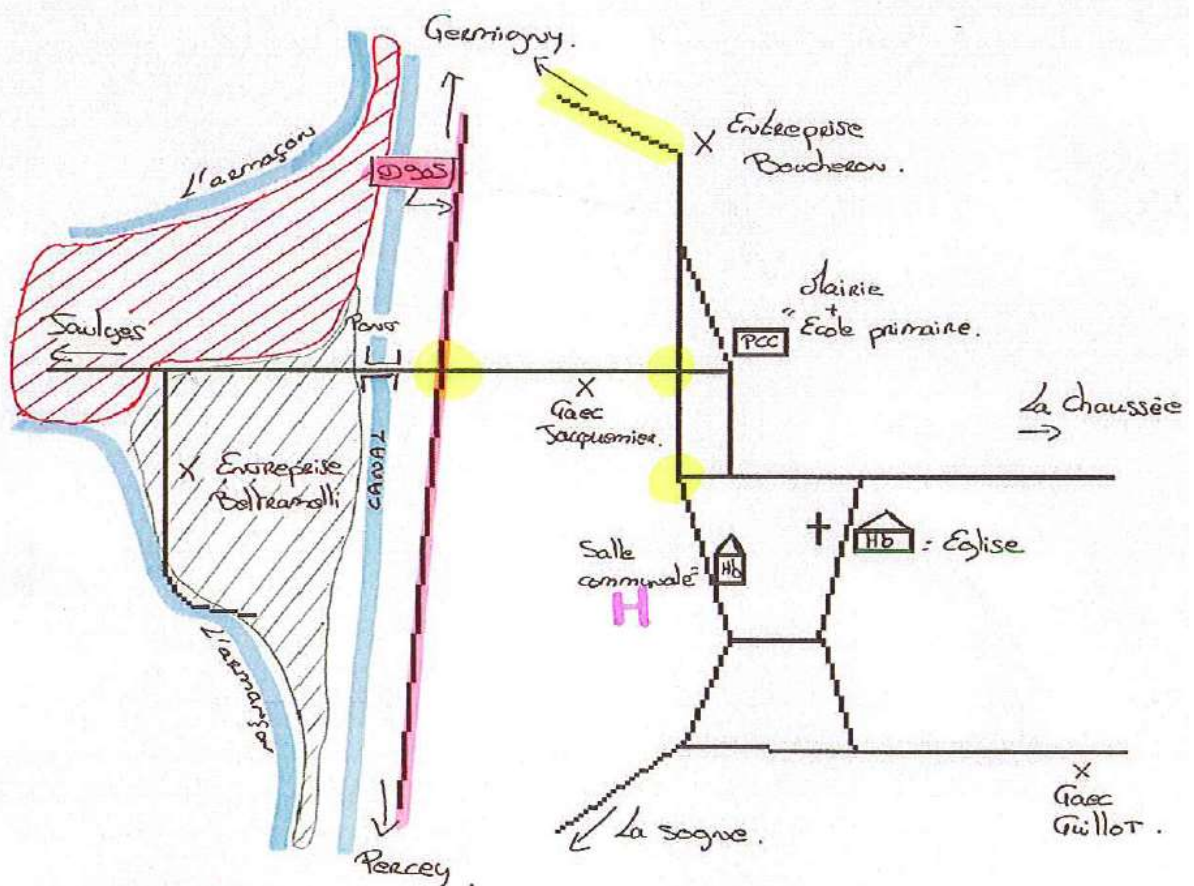 Germigny.
L'armaçon
D905
Entreprise
Boucheron.
Mairie
+
" Ecole primaire.
PCC
Saulges
Pont
Gaec
Jacquemier.
La chaussée
Entreprise
Beltramelli
CANAL
Salle
communale =
Hb
H
Hb = Eglise
L'armançon
Percey.
La sogne.
Gaec
Guillot.